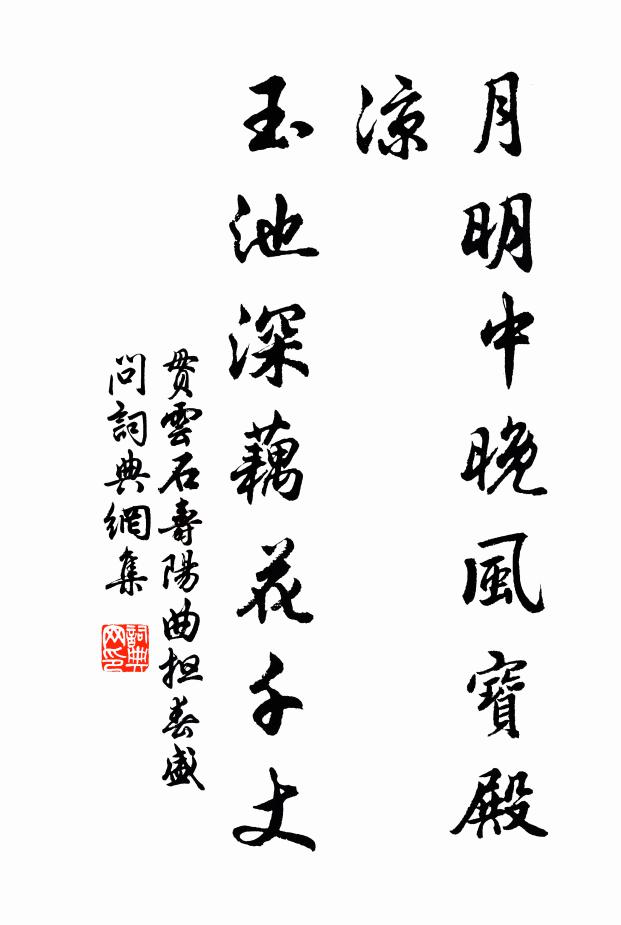 月明中晚風寶殿
涼
玉池深藕花千丈
貫雲石壽陽曲担春盛
問詞典網集
詞典
网印